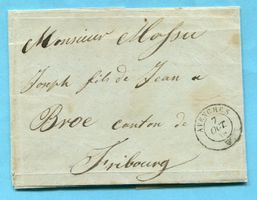 Monsieur Mossu
Joseph fils de Jean a
Broc canton de
Fribourg
AVENCHES
7
OCT